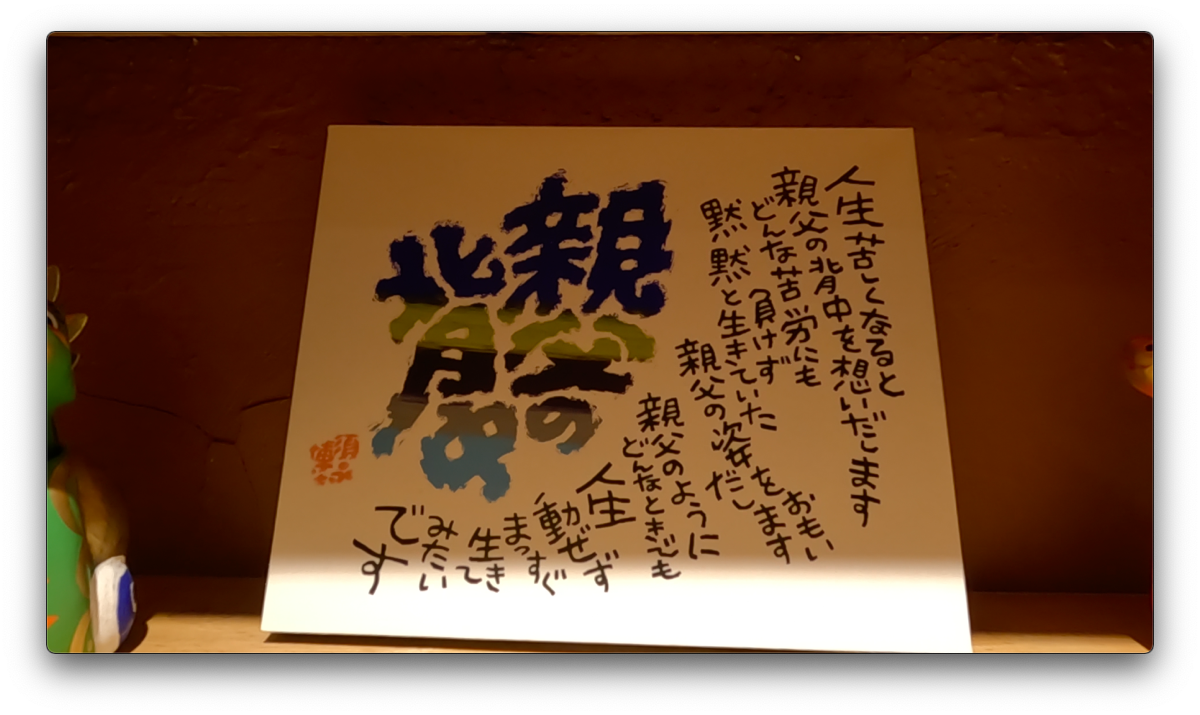 人生苦しくなると
親父の背中を想いだします
どんな苦労にも
負けず
黙黙と生きていた
親父の姿を
おもい
だします
親父のように
どんなときでも
動ぜず
人生
まっすぐ
生きて
みたい
です
親父の
背中